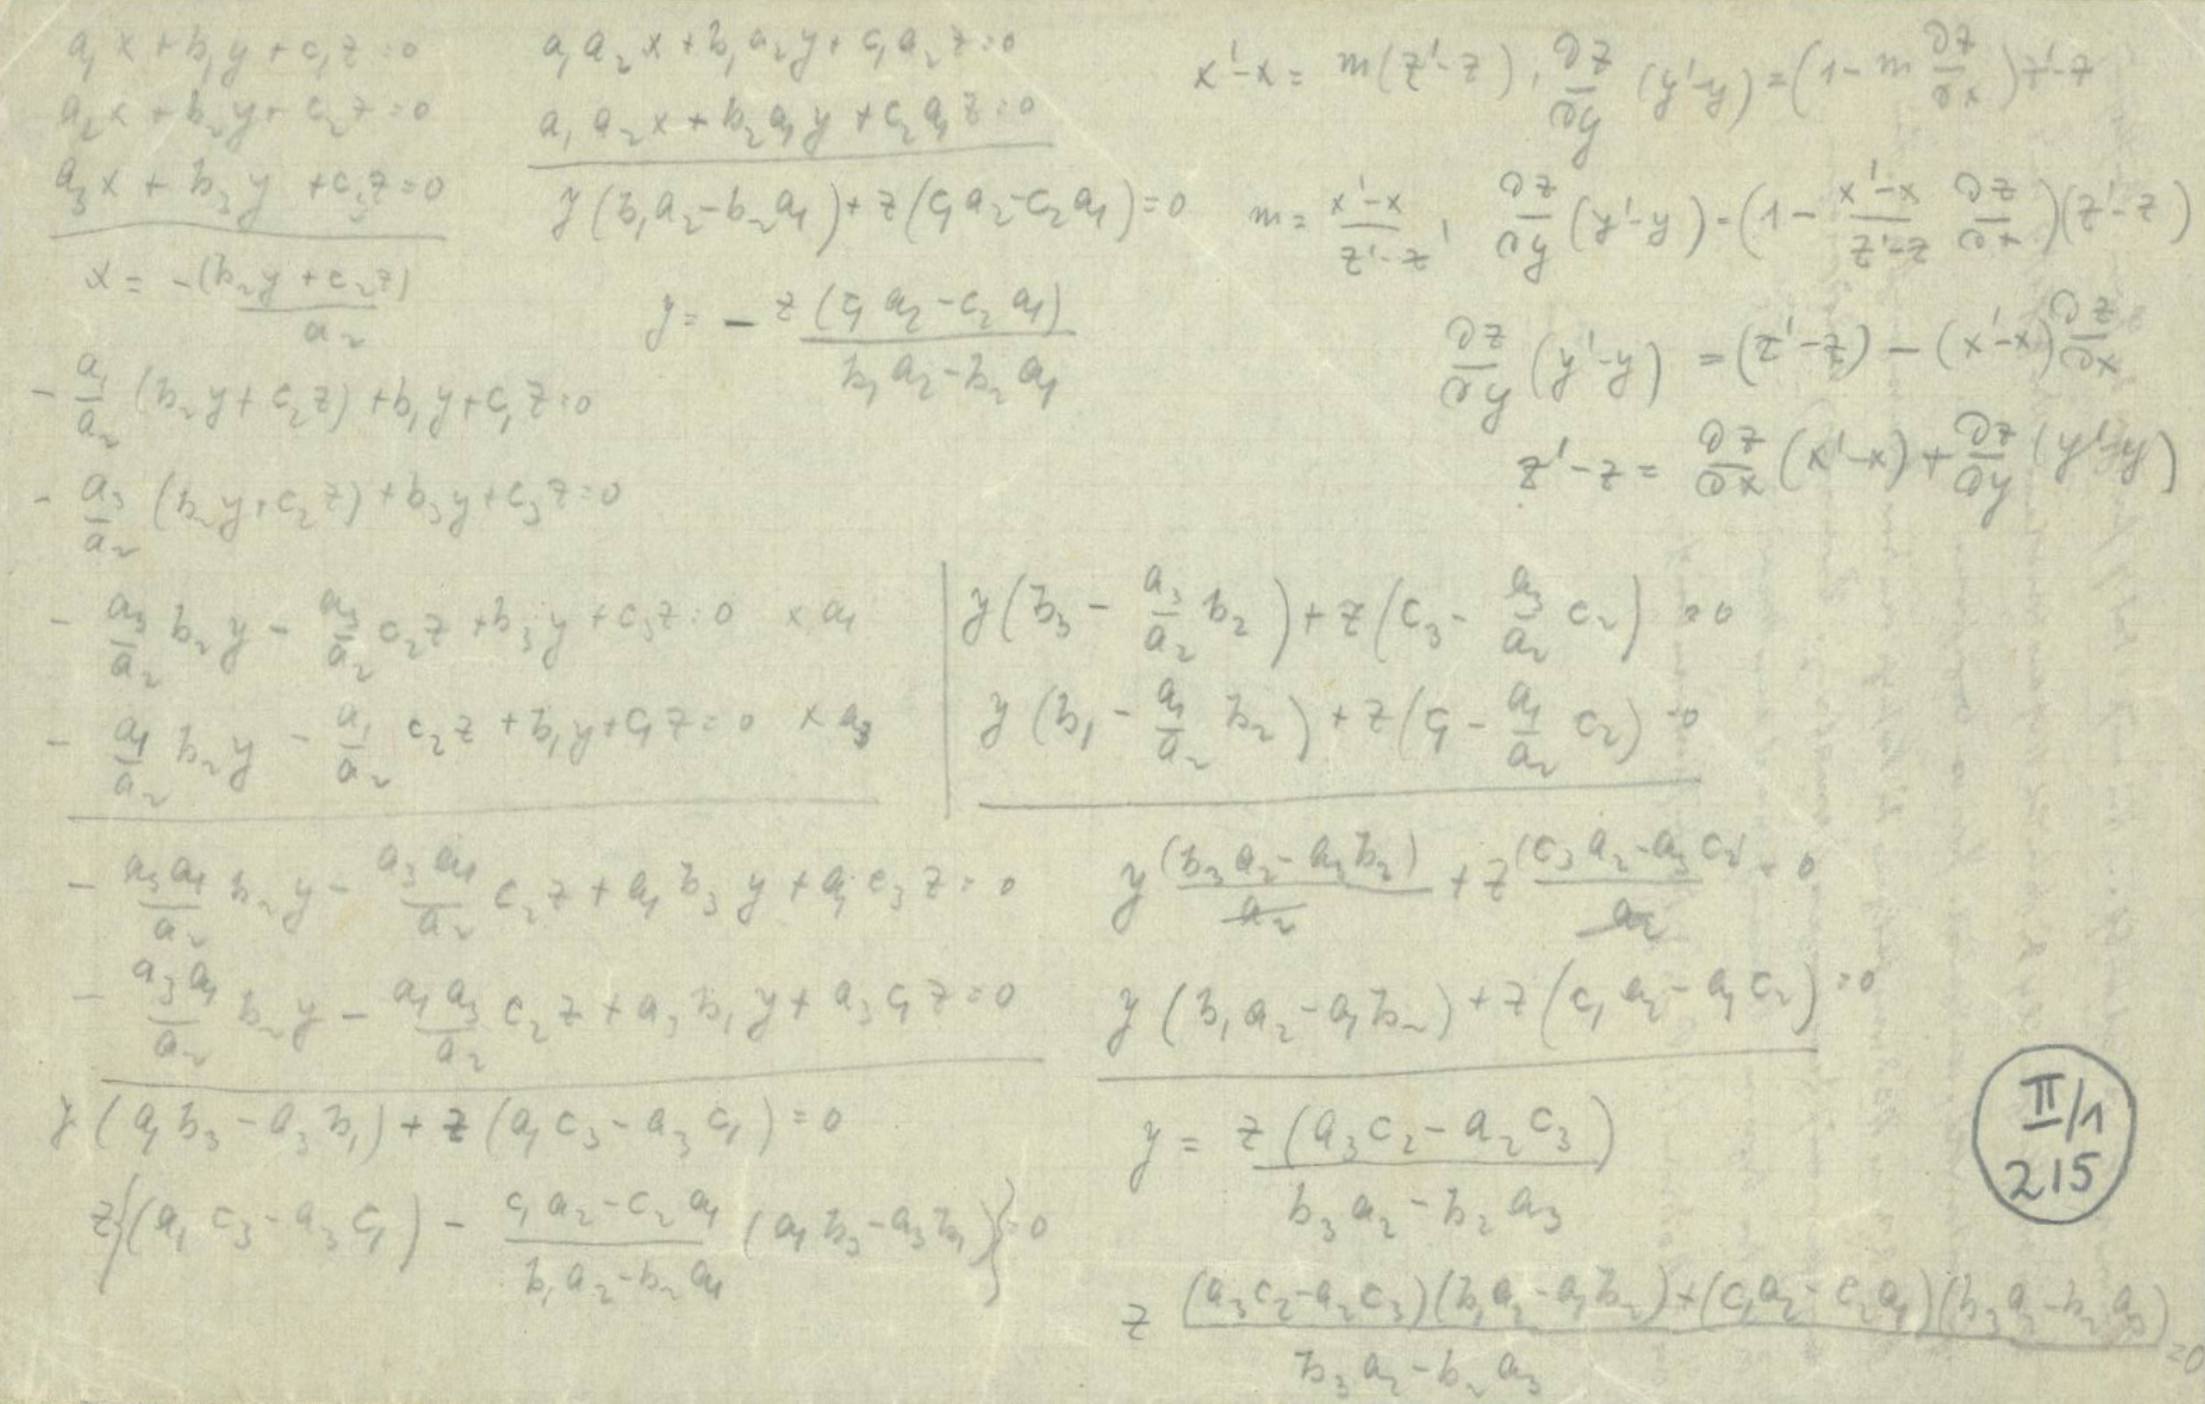 a₁x + b₁y + c₁z = 0
a₂x + b₂y + c₂z = 0
a₃x + b₃y + c₃z = 0
x = -(b₂y + c₂z) / a₂
- a₁/a₂ (b₂y + c₂z) + b₁y + c₁z = 0
- a₃/a₂ (b₂y + c₂z) + b₃y + c₃z = 0
a₁a₂x + b₁a₂y + c₁a₂z = 0
a₁a₂x + b₂a₁y + c₂a₁z = 0
y(b₁a₂ - b₂a₁) + z(c₁a₂ - c₂a₁) = 0
y = - z(c₁a₂ - c₂a₁) / b₁a₂ - b₂a₁
x' - x = m(z' - z), ∂z/∂y (y' - y) = (1 - m ∂z/∂x) z' - z
m = x' - x / z' - z, ∂z/∂y (y' - y) = (1 - x' - x / z' - z ∂z/∂x)(z' - z)
∂z/∂y (y' - y) = (z' - z) - (x' - x) ∂z/∂x
z' - z = ∂z/∂x (x' - x) + ∂z/∂y (y' - y)
- a₃/a₂ b₂y - a₃/a₂ c₂z + b₃y + c₃z = 0 × a₁
- a₁/a₂ b₂y - a₁/a₂ c₂z + b₁y + c₁z = 0 × a₃
- a₃a₁/a₂ b₂y - a₃a₁/a₂ c₂z + a₁b₃y + a₁c₃z = 0
- a₃a₁/a₂ b₂y - a₁a₃/a₂ c₂z + a₃b₁y + a₃c₁z = 0
y(a₁b₃ - a₃b₁) + z(a₁c₃ - a₃c₁) = 0
z{(a₁c₃ - a₃c₁) - c₁a₂ - c₂a₁ / b₁a₂ - b₂a₁ (a₁b₃ - a₃b₁)} = 0
y(b₃ - a₃/a₂ b₂) + z(c₃ - a₃/a₂ c₂) = 0
y(b₁ - a₁/a₂ b₂) + z(c₁ - a₁/a₂ c₂) = 0
y (b₃a₂ - a₃b₂) / a₂ + z (c₃a₂ - a₃c₂) / a₂ = 0
y(b₁a₂ - a₁b₂) + z(c₁a₂ - a₁c₂) = 0
y = z(a₃c₂ - a₂c₃) / b₃a₂ - b₂a₃
z (a₃c₂ - a₂c₃)(b₁a₂ - a₁b₂) + (c₁a₂ - c₂a₁)(b₃a₂ - b₂a₃) / b₃a₂ - b₂a₃ = 0
II/1
215